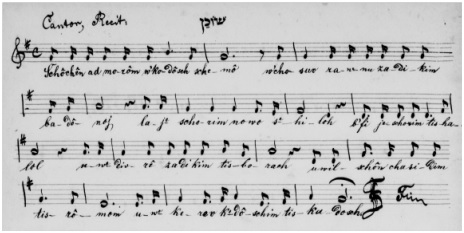 Cantor, Recit שוכן
Schôchên ad mo-rôm w'ko-dôsch sche-mô w'cho-suw ra-n'nu za-di-kim
ba-dô-noj, la-j'scho-rim no-wo s'hi-loh b'fi je-schorim tis-ha-
lol u-w'div-rê zadikim tis-bo-rach u-wil'schôn chasi-dim
tis-rô-mom u-w'ke-rew k'dô-schim tis-ka-dosch. Fine